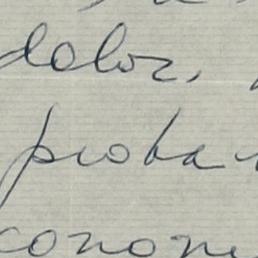 dolor,
proba
conone